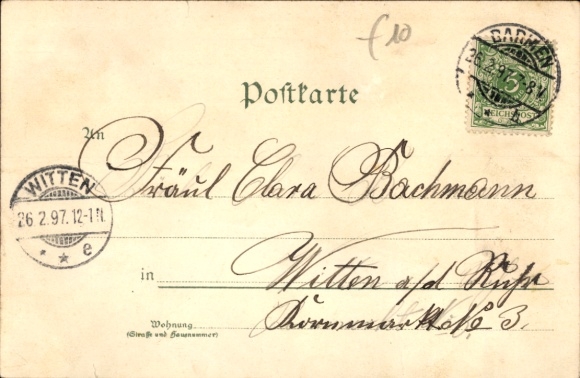 £10
BARMEN
26.2.97. 8-9V
5
REICHSPOST
Postkarte
An
Fräul Clara Bachmann
WITTEN
26.2.97. 12-1N.
* * e
in
Witten a/d Ruhr
Kornmarkt No 3.
Wohnung
(Straße und Hausnummer)